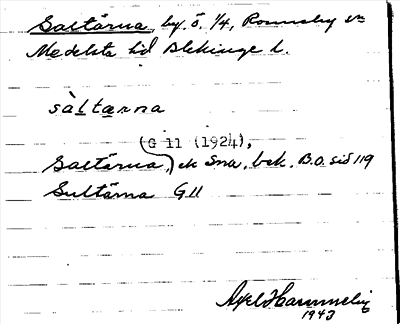 Saltärna, by. ö. 1/4, Ronneby sn
Medelsta hd Blekinge l.
sàltærna
(G 11 (1924),
Saltärna, ek Sma, bek. B.O. sid 119
Sultärna G 11
Axel Hammelig
1943